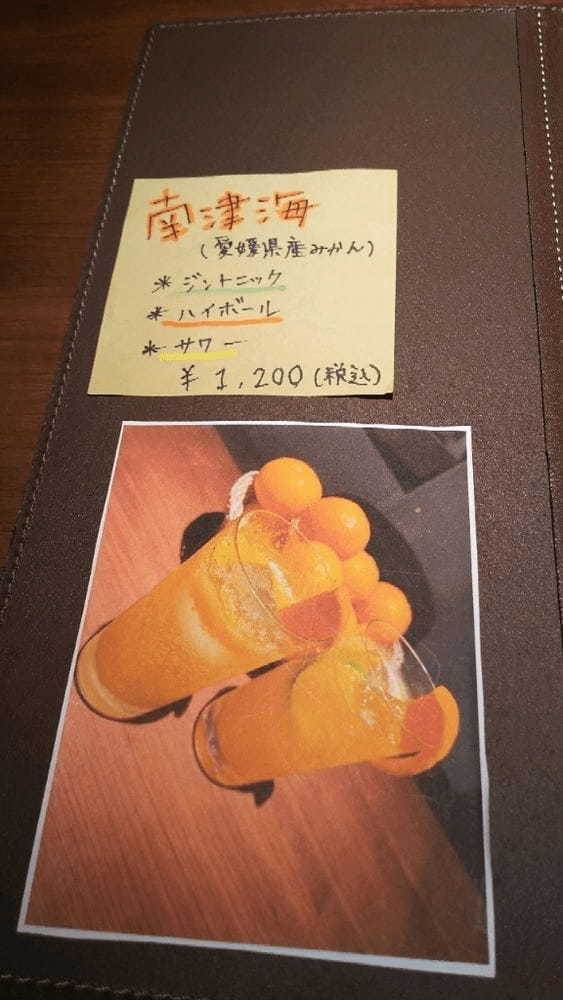 南津海
(愛媛県産みかん)
* ジントニック
* ハイボール
* サワー
¥ 1,200 (税込)